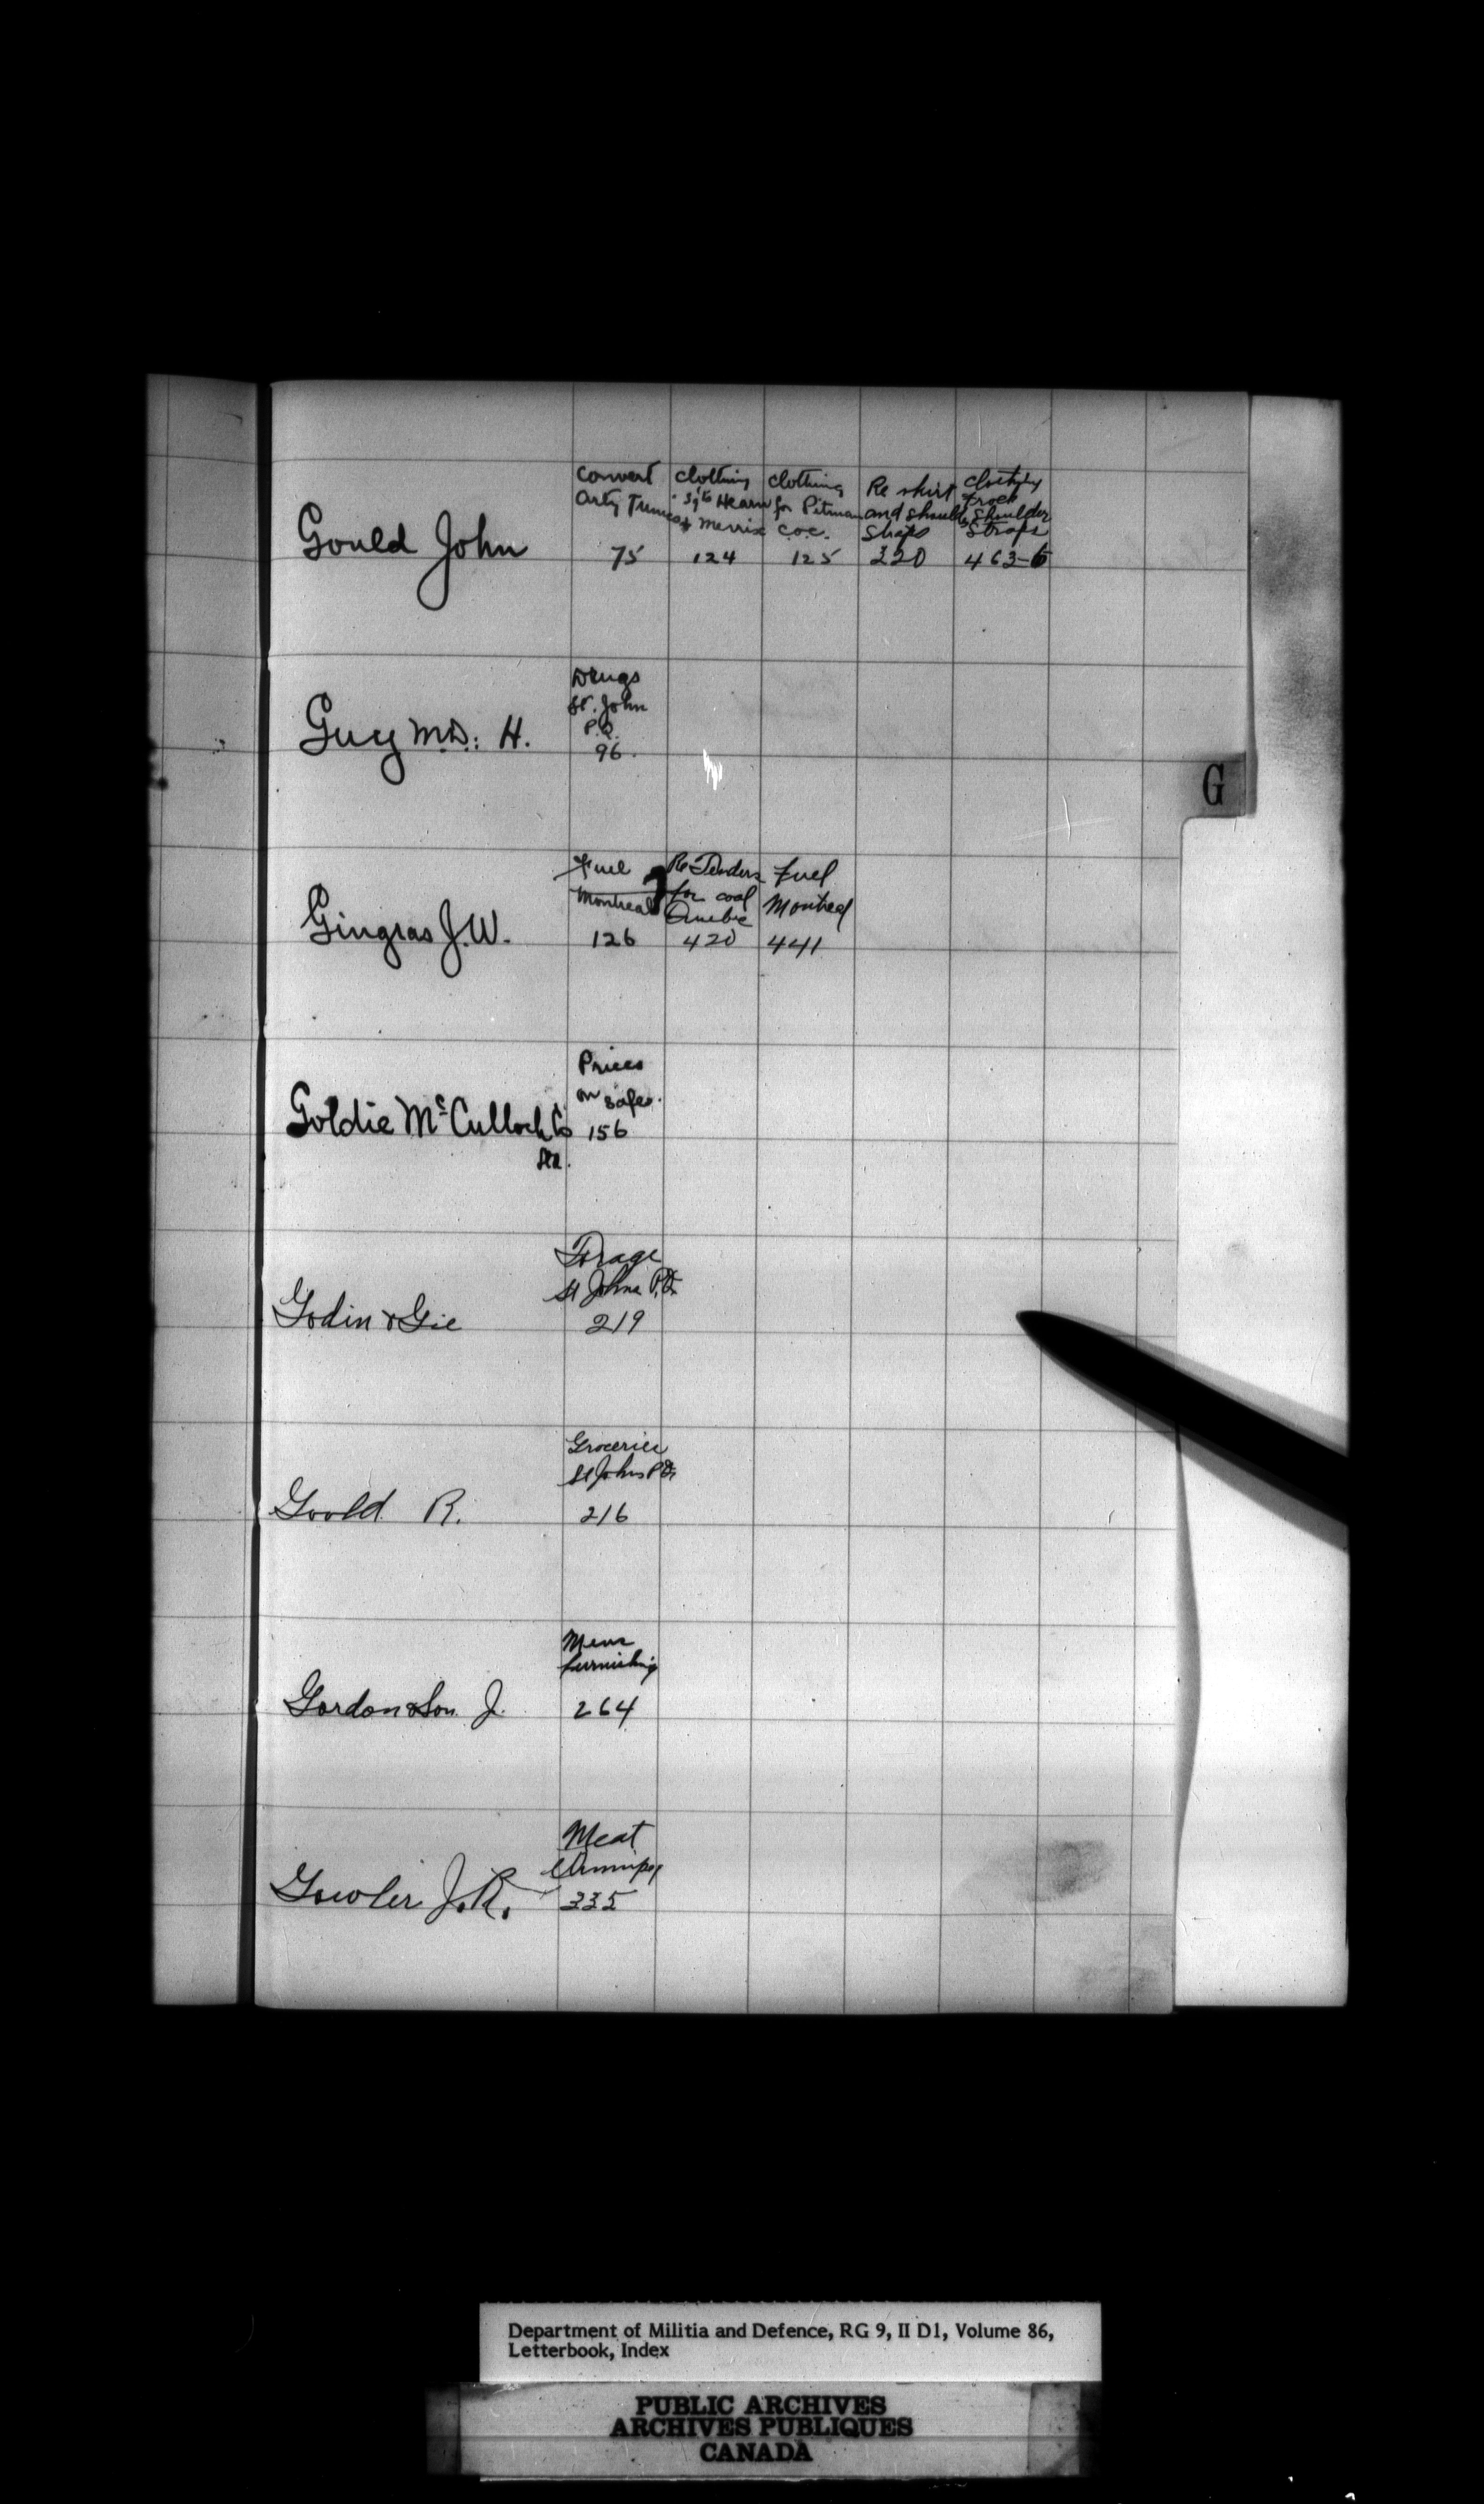 Convert
Arty Tunics
75
Clothing
Sgts Hearn
& Merrix
124
Clothing
for Pitman
C.O.C.
125
Re skirt
and should
Straps
320
Clothing
Frock
Shoulder
Straps
463-5
Gould John
Drugs
St. John
P.Q.
96.
Guy M.D.: H.
G
Fuel
Montreal
126
Re Tenders
for coal
Quebec
420
Fuel
Montreal
441
Gingras J.W.
Prices
on safes.
156
Goldie McCulloch Co
Ltd.
Forage
St Johns P.Q.
219
Godin & Cie
Groceries
St Johns P.Q.
216
Goold R.
Mens
furnishing
264
Gordon & Son J.
Meat
Winnipeg
335
Gowler J.R.
Department of Militia and Defence, RG 9, II D1, Volume 86,
Letterbook, Index
PUBLIC ARCHIVES
ARCHIVES PUBLIQUES
CANADA